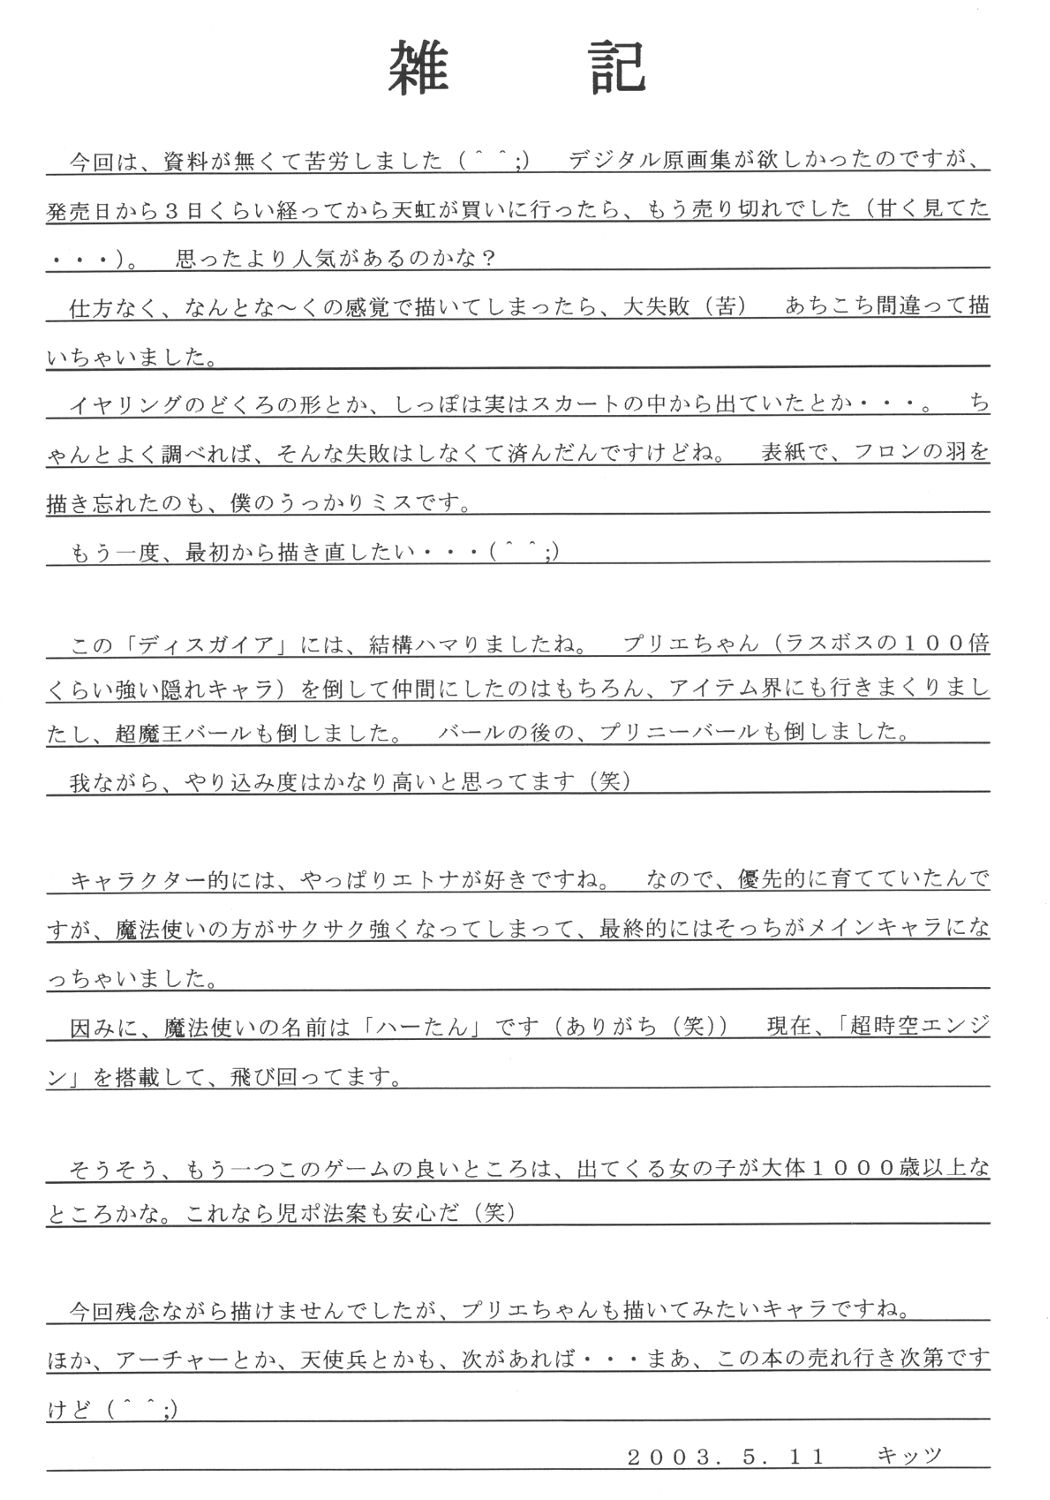 雑　　記
今回は、資料が無くて苦労しました（＾＾;）　デジタル原画集が欲しかったのですが、
発売日から３日くらい経ってから天虹が買いに行ったら、もう売り切れでした（甘く見てた
・・・）。　思ったより人気があるのかな？
仕方なく、なんとな～くの感覚で描いてしまったら、大失敗（苦）　あちこち間違って描
いちゃいました。
イヤリングのどくろの形とか、しっぽは実はスカートの中から出ていたとか・・・。　ち
ゃんとよく調べれば、そんな失敗はしなくて済んだんですけどね。　表紙で、フロンの羽を
描き忘れたのも、僕のうっかりミスです。
もう一度、最初から描き直したい・・・（＾＾;）
この「ディスガイア」には、結構ハマりましたね。　プリエちゃん（ラスボスの１００倍
くらい強い隠れキャラ）を倒して仲間にしたのはもちろん、アイテム界にも行きまくりまし
たし、超魔王バールも倒しました。　バールの後の、プリニーバールも倒しました。
我ながら、やり込み度はかなり高いと思ってます（笑）
キャラクター的には、やっぱりエトナが好きですね。　なので、優先的に育てていたんで
すが、魔法使いの方がサクサク強くなってしまって、最終的にはそっちがメインキャラにな
っちゃいました。
因みに、魔法使いの名前は「ハーたん」です（ありがち（笑））　現在、「超時空エンジ
ン」を搭載して、飛び回ってます。
そうそう、もう一つこのゲームの良いところは、出てくる女の子が大体１０００歳以上な
ところかな。これなら児ポ法案も安心だ（笑）
今回残念ながら描けませんでしたが、プリエちゃんも描いてみたいキャラですね。
ほか、アーチャーとか、天使兵とかも、次があれば・・・まあ、この本の売れ行き次第です
けど（＾＾;）
２００３．５．１１　　キッツ